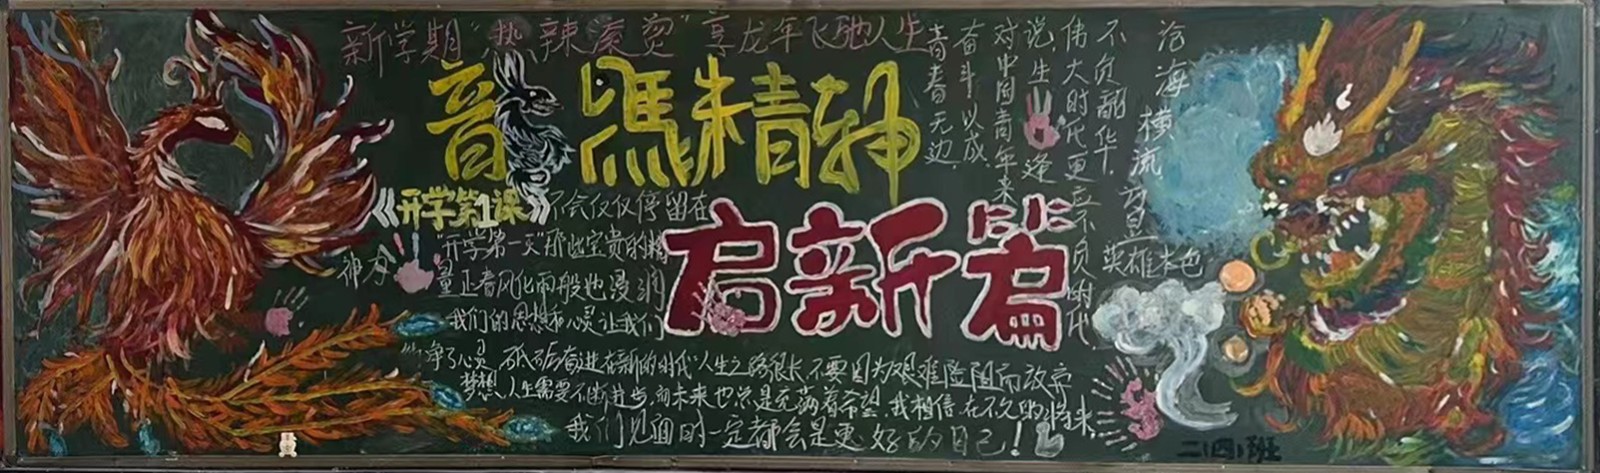 新学期“热辣滚烫”享龙年飞驰人生
精神
启新篇
《开学第1课》不会仅仅停留在
“开学第一天”那些宝贵的精
神力量正春风化雨般地浸润
我们的思想和心灵让我们
净了心灵 砥砺奋进在新的时代 人生之路很长,不要因为艰难险阻而放弃
梦想、人生需要不断进步,而未来也总是充满着希望,我相信,在不久的将来,
我们见面时一定都会是更好的自己!
青春无边
奋斗以成
对中国青年来
说,生逢
伟大时代更应不负时代
不负韶华
沧海横流方显
英雄本色
二(四)班